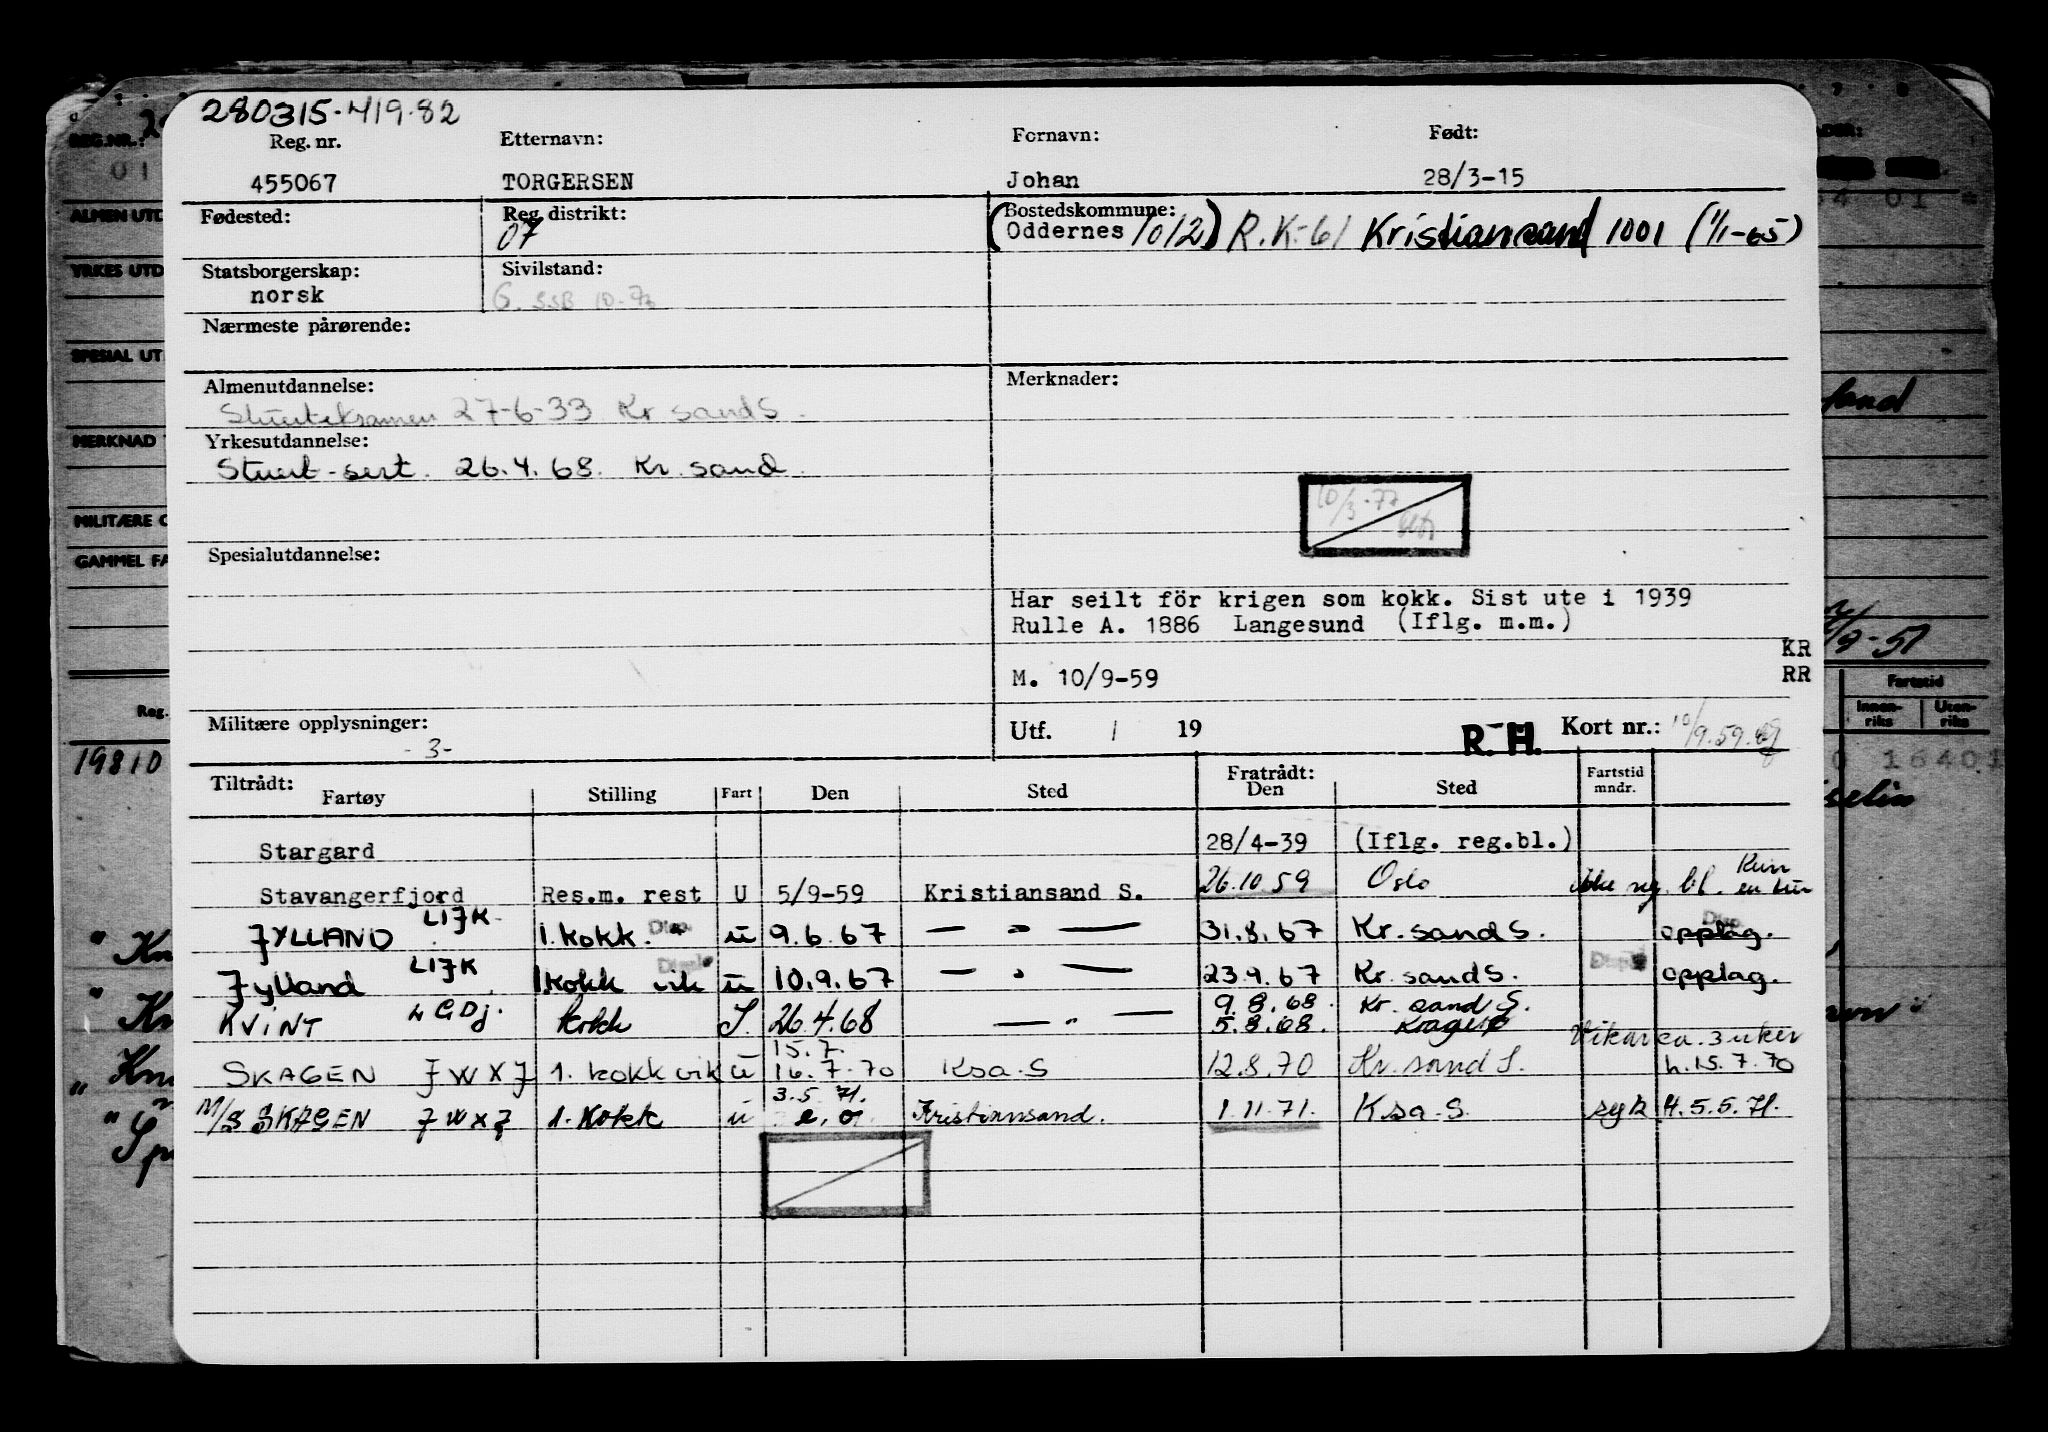 280315-41982
Reg. nr. Etternavn: Fornavn: Født:
455067 TORGERSEN Johan 28/3-15
Fødested: Reg. distrikt: Bostedskommune:
07 (Oddernes 1012) R.K-61 Kristiansand 1001 (1/1-65)
Statsborgerskap: Sivilstand:
norsk G. SSB 10-70
Nærmeste pårørende:
Almenutdannelse: Merknader:
Stuerteksamen 27-6-33 Kr sand S.
Yrkesutdannelse:
Stuert-sert. 26.4.68. Kr. sand.
10/3-77
Spesialutdannelse:
Har seilt för krigen som kokk. Sist ute i 1939
Rulle A. 1886 Langesund (Iflg. m.m.)
KR
M. 10/9-59 RR
Militære opplysninger: Utf. / 19 R.H. Kort nr.: 10/9.59.
-3-
Tiltrådt: Fratrådt: Fartstid
Fartøy Stilling Fart Den Sted Den Sted mndr.
Stargard 28/4-39 (Iflg. reg.bl.)
Stavangerfjord Res.m. rest U 5/9-59 Kristiansand S. 26.10 59 Oslo ikke reg. bl. Kun en tur
JYLLAND LIJK 1. kokk. Disp. u 9.6.67 — " — 31.8.67 Kr. sand S. Disp. opplag.
Jylland LIJK 1.kokk vik u 10.9.67 — " — 23.9.67 Kr. sand S. opplag.
9.8.68. Kr. sand S.
KVINT LGDj. kokk S. 26.4.68 — " — 5.8.68. Kragerø
15.7. Vikar ca. 3 uker
SKAGEN JWXJ 1. kokk vik u 16.7.70 Ksa. S 12.8.70 Kr. sand S. h. 15.7.70
3.5.71.
M/S SKAGEN JWXJ 1. Kokk u e.o. Kristiansand. 1.11.71. Ksa. S. syk H. 5.5.71.
REG.NR.:
01
ALMEN UTD
YRKES UTD
SPESIAL UT
MERKNAD
MILITÆRE O
GAMMEL FA
Reg.
19810
" Kn
" Kn
" Kn
" Sp
01
9-51
Fartstid
Innenriks Utenriks
16401